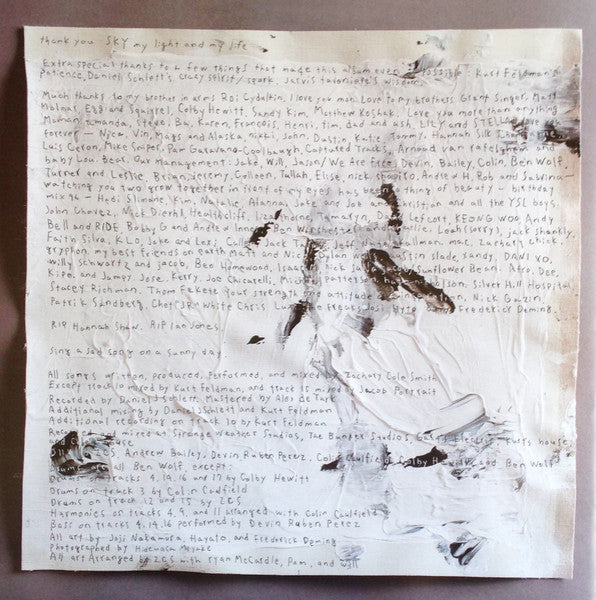 thank you SKY my light and my life
Extra special thanks to a few things that made this album ever possible: Kurt Feldman's
Patience, Daniel Schlett's crazy spirit/spark. Jarvis taveniere's wisdom.
Much thanks to my brother in arms Roi Cydulkin, I love you man. Love to my brothers Grant Singer, Matt
Molnar, Egg and Squirrel, Colby Hewitt, Sandy Kim, Matthew Koshak. Love you more than anything
Maman, Amanda, Steed, Bax, Karen, François, Henri, tim, dad and ash. LILY and STELLA love
forever - Nica, Vin, Mags and Alaska, nikki, John, Dustin, Katie, Tommy, Hannah
Luis Ceron, Mike Sniper, Pam Garavano-Coolbaugh, Captured Tracks, Arnaud van and
baby Lou. Bear. Our management: Jake, Will, Jason/We Are Free, Devin, Bailey, Colin, Ben Wolf,
Turner and Leslie, Brian, Jeremy, Colleen, Tallah, Elise, nick shapiro, Andrew H, Rob and Sabrina -
watching you two grow together in front of my eyes has been thing of beauty - birthday
Hedi Slimane, Kim, Natalie, Alanna, Jake and Job and Christian and all the YSL boys,
John Chavez, Nick Dierhl, Heathcliff, Liza Thorne, tamaryn, Lefcort, KEONG WOO, Andy
Bell and RIDE, Bobby G and Andrew Innes, Ben Winchester, and Leah (sorry), jack shankly,
Faith Silva, KLO, Jake and Lexi, Jack mac, Zachary chick,
gryphon, my best friends on earth Matt and Nick slade, xandy, DAWI XO,
willy schwartz and jacob, Bee Homewood, Isaac, nick Sunflower Bean, Afro, Dee,
Kipo, and Jampy Jose. Kerry, Joe Chicarelli, Silver Hill Hospital
Stacey Richman, Thom Fekett. Your strength attitude Nick Gazin,
Patrik Sandberg, Chef JR White, Chris Freaks, Jos and Frederick Deming.
RIP Hannah Shaw. RIP Ian Jones.
sing a sad song on a sunny day.
All songs written, produced, performed, and mixed by Zachary Cole Smith
Except track 10 mixed by Kurt Feldman, and track 15 mixed by Jacob Portrait
Recorded by Daniel Schlett. Mastered by Alex de Turk
Additional mixing by Daniel Schlett and Kurt Feldman
Additional recording on track 10 by Kurt Feldman
Recorded and mixed at Strange Weather Studios, The Bunker Studios, Electric, Kurt's house,
and house
ZCS, Andrew Bailey, Devin Ruben Perez, Colin Caulfield, Colby Hewitt and Ben Wolf
Drums on all Ben Wolf, except:
Drums on tracks 4, 14, 16 and 17 by Colby Hewitt
Drums on track 3 by Colin Caulfield
Drums on track 12 and 15 by ZCS
Harmonies on tracks 4, 9, and 11 arranged with Colin Caulfield
Bass on tracks 4, 14, 16 performed by Devin Ruben Perez
All art by Joji Nakamura, Hayato, and Frederick Deming
Photographed by Hidemasa Miyake
All art Arranged by ZCS with Ryan McCardle, Pam, and will